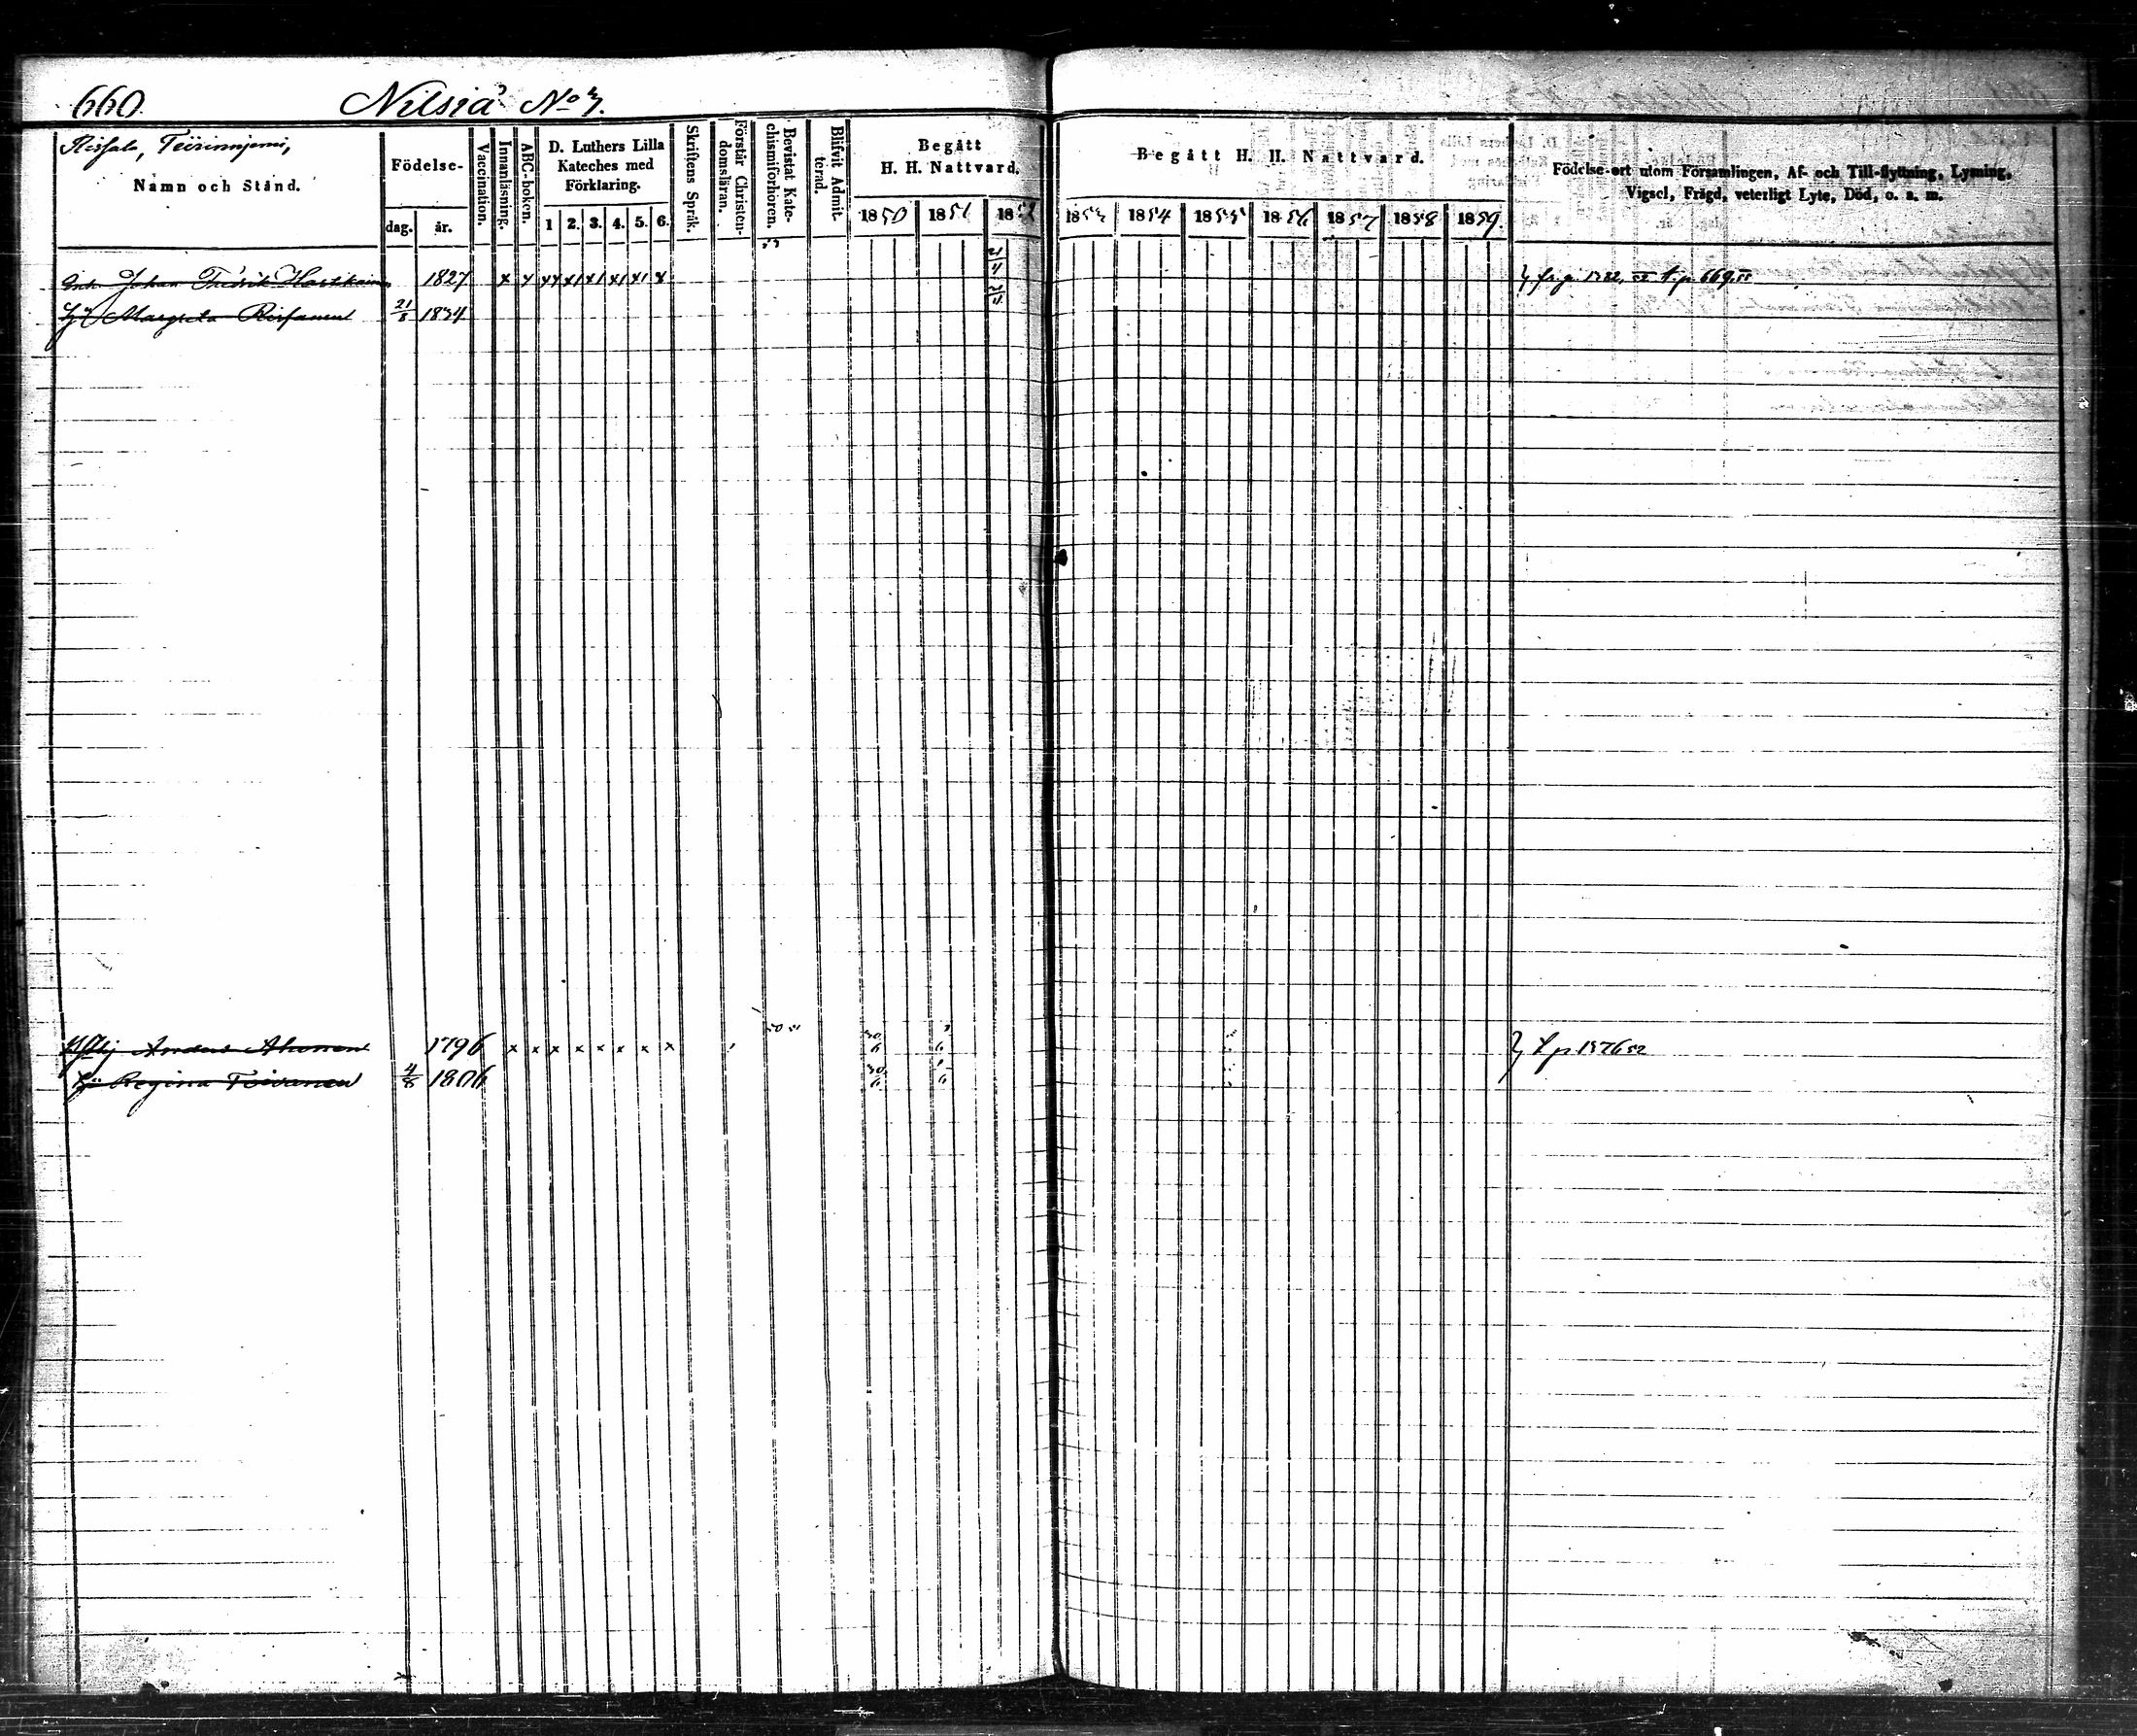 660. Nilsiä No 7.
Namn och Stånd.
Födelse-
dag. år.
Vaccination.
Innanläsning.
ABC-boken.
D. Luthers Lilla
Kateches med
Förklaring.
1 2. 3. 4. 5. 6.
Skriftens Språk.
Förstår Christen-
domsläran.
Bevistat Kate-
chismiförhören.
Blifvit Admit-
terad.
Begått
H. H. Nattvard.
1850 1851 1852
Begått H. H. Nattvard.
1853 1854 1855 1856 1857 1858 1859.
Födelse-ort utom Församlingen, Af- och Till-flyttning, Lysning,
Vigsel, Frägd, veterligt Lyte, Död, o. s. m.
Johan Fredrik 1827 x x x x x x x x
Margreta 21/8 1834
Anders Ahonen 1796 x x x x x x x x
Regina Toivanen 4/8 1806